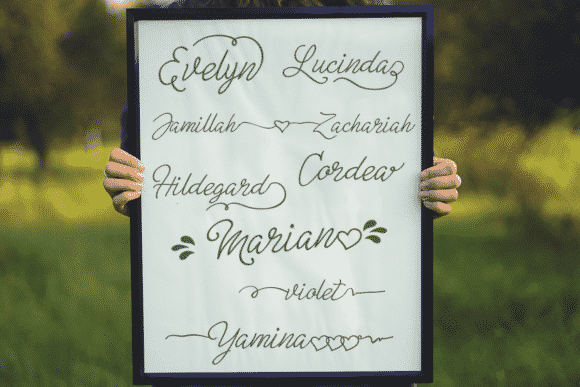 Evelyn Lucinda
Jamillah Zachariah
Hildegard
Marian
violet
Yamina